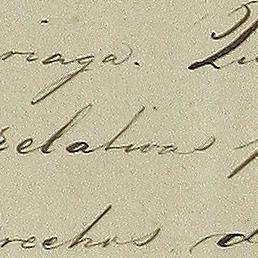 riaga. Qu
relativas p
rechos d